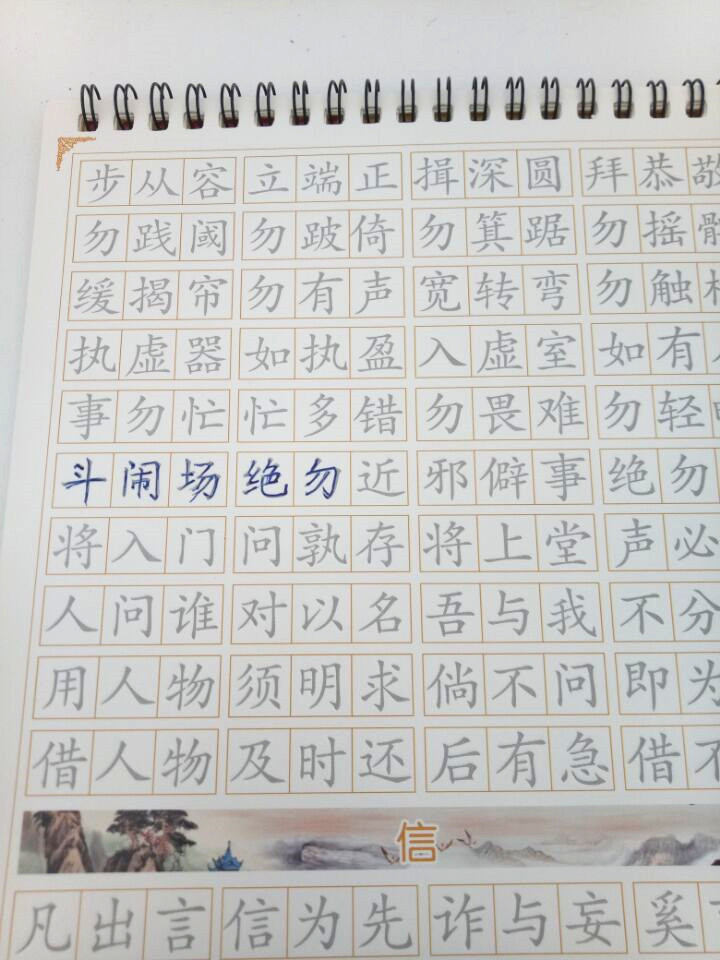 步从容 立端正 揖深圆 拜恭敬
勿践阈 勿跛倚 勿箕踞 勿摇
缓揭帘 勿有声 宽转弯 勿触
执虚器 如执盈 入虚室 如有
事勿忙 忙多错 勿畏难 勿轻
斗闹场 绝勿近 邪僻事 绝勿
将入门 问孰存 将上堂 声必
人问谁 对以名 吾与我 不分
用人物 须明求 倘不问 即为
借人物 及时还 后有急 借不
信
凡出言 信为先 诈与妄 奚